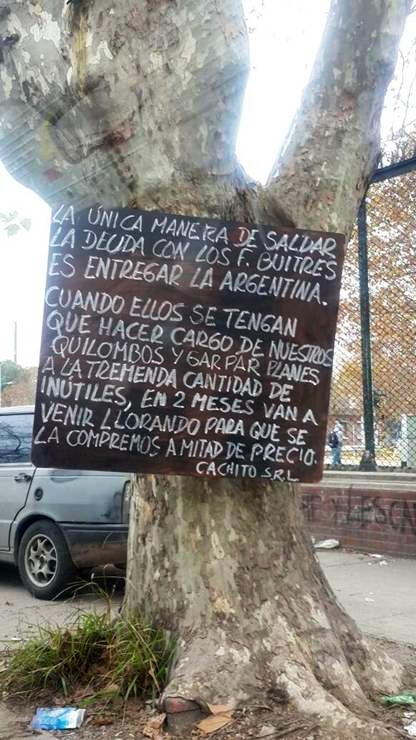 LA ÚNICA MANERA DE SALDAR
LA DEUDA CON LOS F. BUITRES
ES ENTREGAR LA ARGENTINA.
CUANDO ELLOS SE TENGAN
QUE HACER CARGO DE NUESTROS
QUILOMBOS Y GARPAR PLANES
A LA TREMENDA CANTIDAD DE
INÚTILES, EN 2 MESES VAN A
VENIR LLORANDO PARA QUE SE
LA COMPREMOS A MITAD DE PRECIO.
CACHITO S.R.L